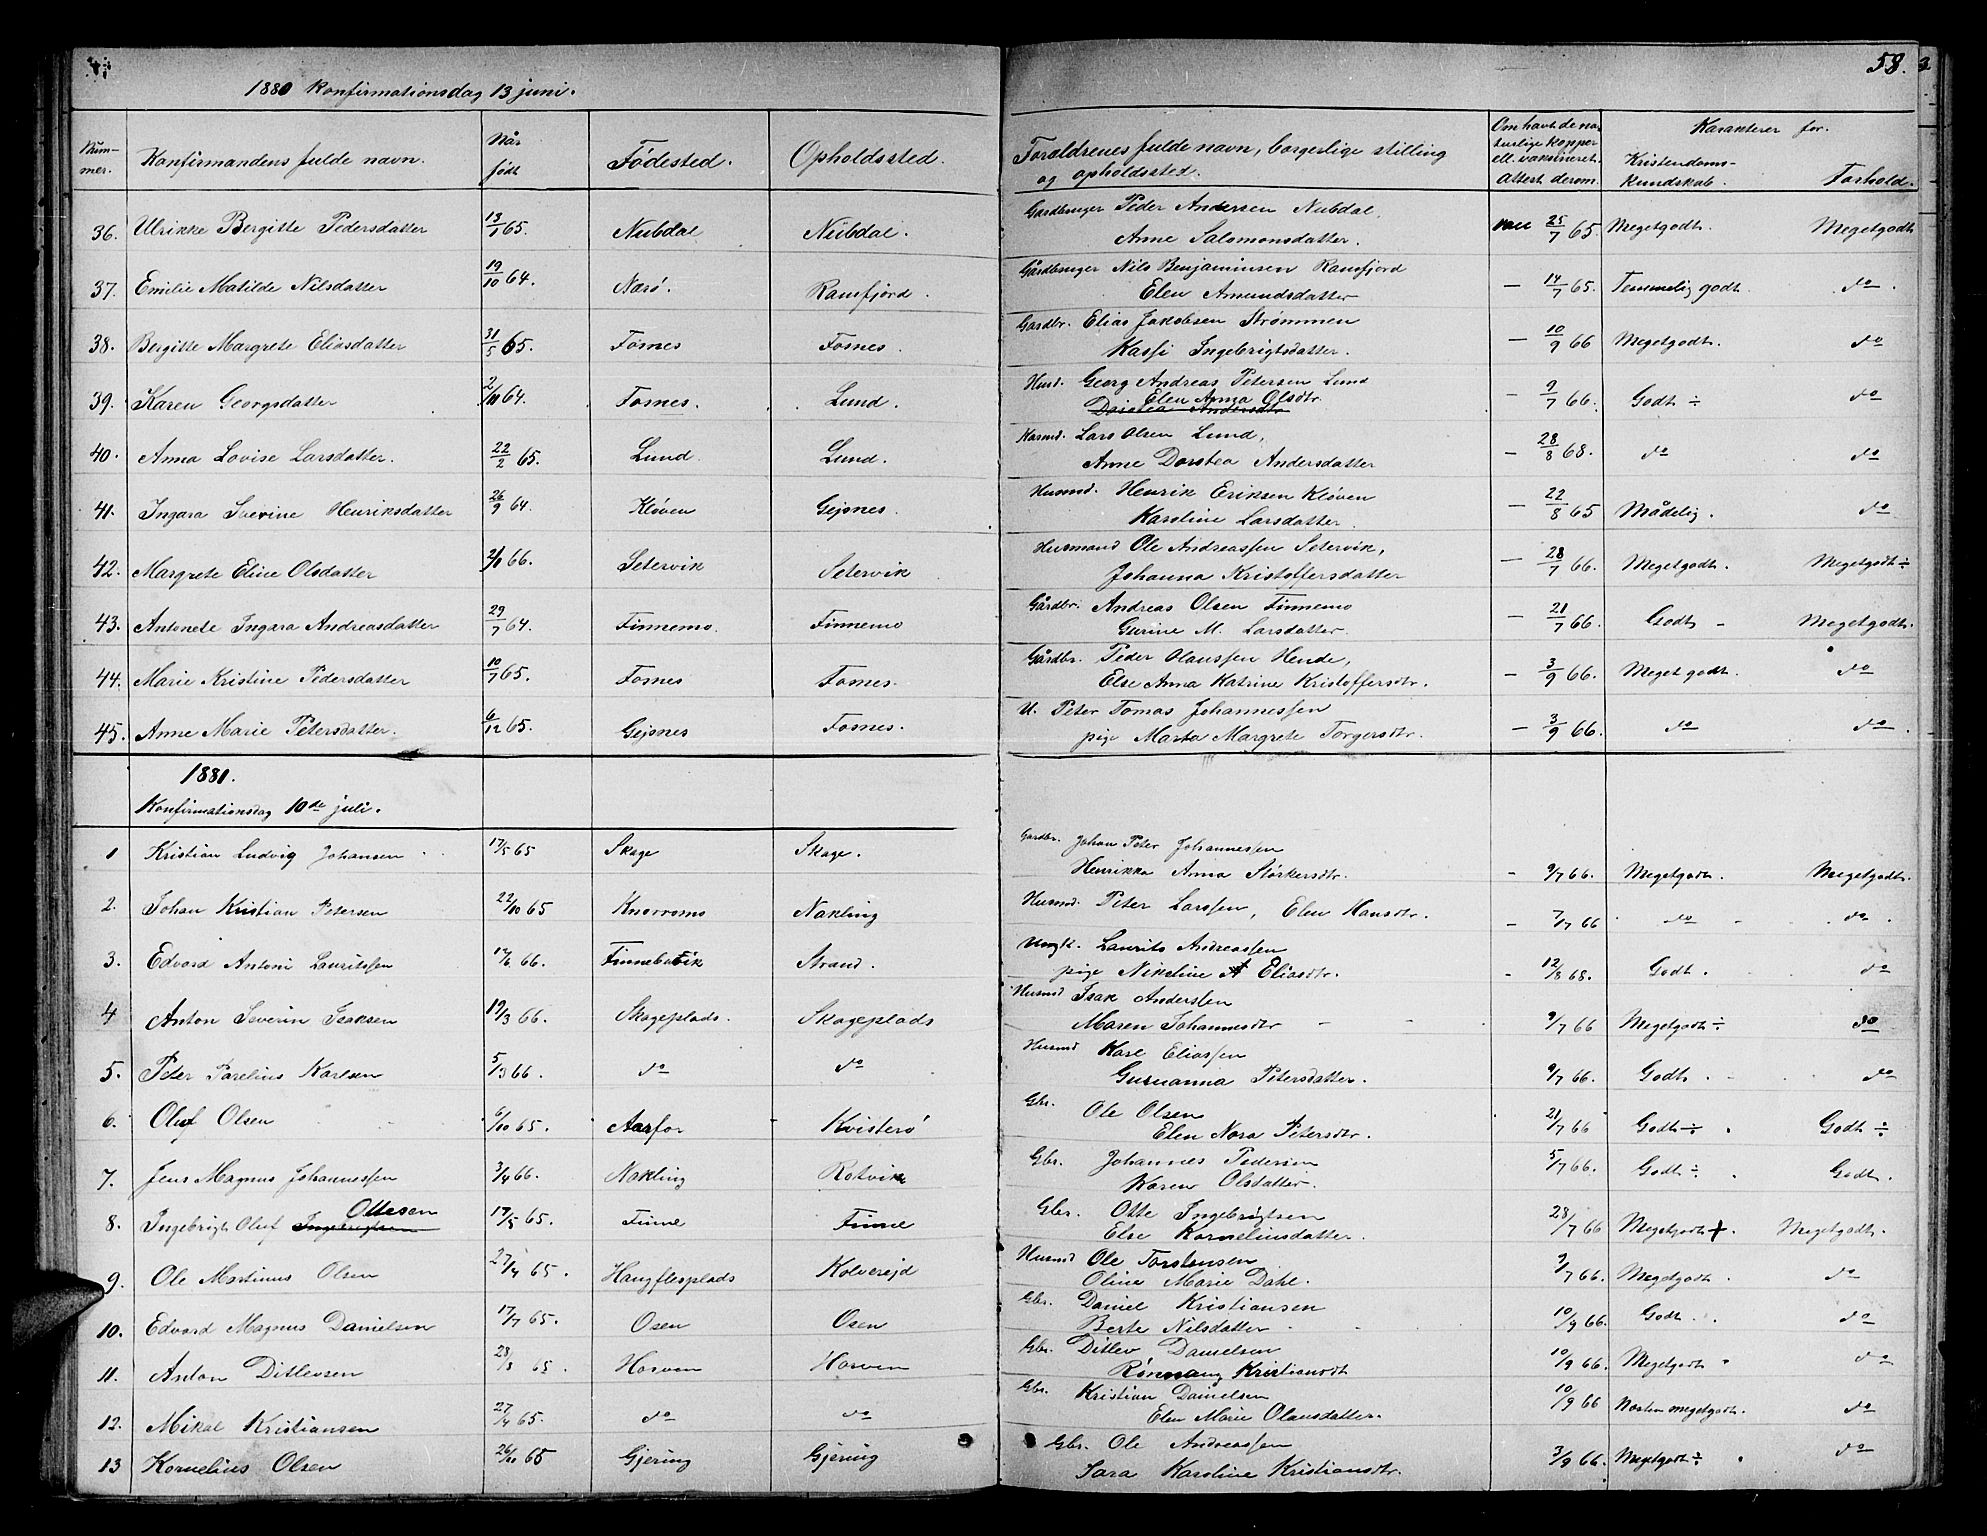 58.
1880 Konfirmationsdag 13 juni.
Num-mer. Konfirmandens fulde navn. Når født Fødested. Opholdssted. Foraldrenes fulde navn, borgerlige stilling og opholdssted. Om havt de naturlige kopper ell. vaksineret. Attest derom. Karakterer for. Kristendoms-kundskab. Forhold.
36. Ulrikke Bergitte Pedersdatter 13/1 65. Nubdal Nubdal. Gardbruger Peder Andersen Nubdal,
Anne Salomonsdatter. vac 25/7 65 Megetgodt. Megetgodt
37. Emilie Matilde Nilsdatter 19/10 64. Nærø. Ramfjord. Gårdbruger Nils Benjaminsen Ramfjord
Elen Amundsdatter — 14/7 65. Temmelig godt do.
38. Bergitte Margrete Eliasdatter 31/5 65. Fosnes Fosnes. Gardbr. Elias Jakobsen Strømmen
Kassi Ingebrigtsdatter. — 10/9 66 Megetgodt. do
39. Karen Georgsdatter 2/11 64. Fosnes. Lund. Husd. Georg Andreas Petersen Lund
Elen Anna Olsdtr
Dorotea Andersdtr - 9/7 66. Godt ÷ do
40. Anna Lovise Larsdatter. 22/2 65. Lund Lund. Lars Olsen Lund,
Anne Dorotea Andersdatter — 28/8 68. do do
41. Ingara Severine Henriksdatter 26/9 64. Kløven Gejsnes. Husmd. Henrik Eriksen Kløven
Karoline Larsdatter. — 22/8 65 Mådelig. do
42. Margrete Eline Olsdatter 2/1 66. Setervik Setervik Husmand Ole Andreassen Setervik,
Johanna Kristoffersdatter — 28/7 66. Megetgodt. Megetgodt ÷
43. Antonete Ingara Andreasdatter 29/7 64. Finnemo. Finnemo Gårdbr. Andreas Olsen Finnemo
Gurine M. Larsdatter. — 21/7 66. Godt - Megetgodt.
44. Marie Kristine Pedersdatter 10/7 65. Fosnes Fosnes. Gårdbr. Peder Olaussen Hende,
Else Anna Katrine Kristoffersdtr. — 3/9 66. Meget godt. do
45. Anne Marie Petersdatter. 6/12 65. Gejsnes Fosnes. U. Peter Tomas Johannessen
pige Marta Margrete Torgersdtr. — 3/9 66. do do.
1881.
Konfirmationsdag 10de juli.
1 Kristian Ludvig Johansen 17/5 65 Skage Skage. Gardbr. Johan Peter Johannessen
Henrikka Anna Størkersdtr. - 9/7 66. Megetgodt. Megetgodt.
2. Johan Kristian Petersen 22/10 65 Knorromo Nakling Husmd. Peter Larssen, Elen Hansdtr. - 7/7 66 do do.
3. Edvard Antoni Lauritssen 17/6 66. Strand. Ungk. Laurits Andreassen
pige Nikeline A Eliasdtr. - 12/8 68. Godt. do
4 Anton Severin Isaksen 19/3 66. Skageplads. Skageplads Husmd Isak Anderssen
Maren Johannesdtr 9/7 66 Megetgodt ÷ do
5. Peter Parelius Karlsen 5/3 66. do do Husmd Karl Eliassen
Gurianna Petersdatter. 9/7 66. Godt. do
6. Oluf Olsen 6/10 65. Aarfor Kvisterø Gbr. Ole Olsen
Elen Nora Petersdtr. 21/7 66 Godt ÷. Godt ÷
7. Jens Magnus Johannessen 3/4 66. Nakling Rotvik Gbr. Johannes Pedersen
Karen Olsdatter. 5/7 66. Godt ÷. Godt.
8. Ingebrigt Oluf Ingebrigtsen Ottesen 17/5 65. Finne Finne Gbr. Otte Ingebrigtsen
Else Korneliusdatter. 28/7 66 Megetgodt +. Megetgodt.
9. Ole Martinus Olsen 27/4 65. Haugflesplads Kolvereid Husmd Ole Torstensen
Oline Marie Dahl. 9/7 66. Megetgodt. do
10. Edvard Magnus Danielsen 17/7 65. Osen Osen Gbr. Daniel Kristiansen
Berte Nilsdatter 10/9 66. Godt. do
11. Anton Ditlevsen 28/8 65. Horven Horven Gbr. Ditlev Danielsen
Rønnaug Kristiansdtr 10/9 66. Megetgodt do
12. Mikal Kristiansen 27/4 65. do do Gbr. Kristian Danielsen
Elen Marie Olausdatter. 10/9 66 Næsten megetgodt. do
13 Kornelius Olsen 26/11 65 Gjering Gjering Gbr. Ole Andreassen
Sara Karoline Kristiansdtr. 3/9 66. Megetgodt ÷. do